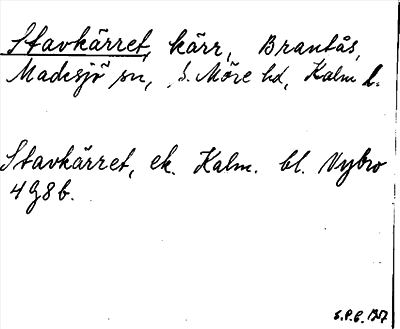 Stavkärret, kärr, Brantås,
Madesjö sn, S. Möre hd, Kalm. l.
Stavkärret, ek. Kalm. bl. Nybro
4G8b.
S.P.B. 1967